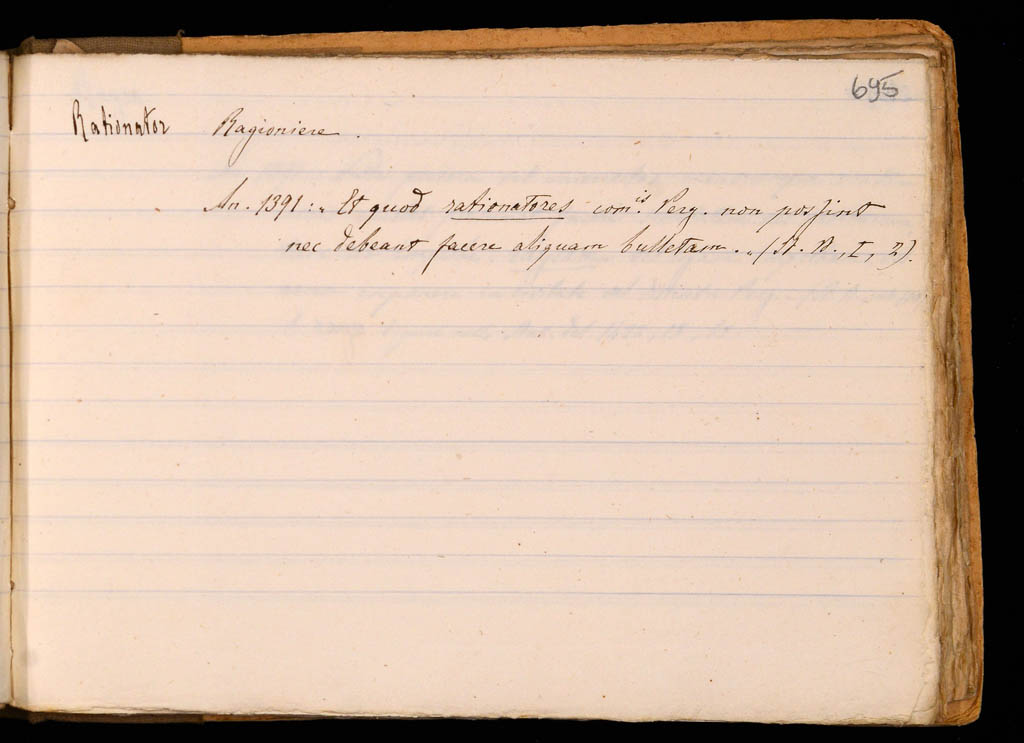 695
Rationator Ragioniere.
An. 1391: „ Et quod rationatores com.is Perg. non possint
nec debeant facere aliquam bulletam. „ (St. B., I, 2).